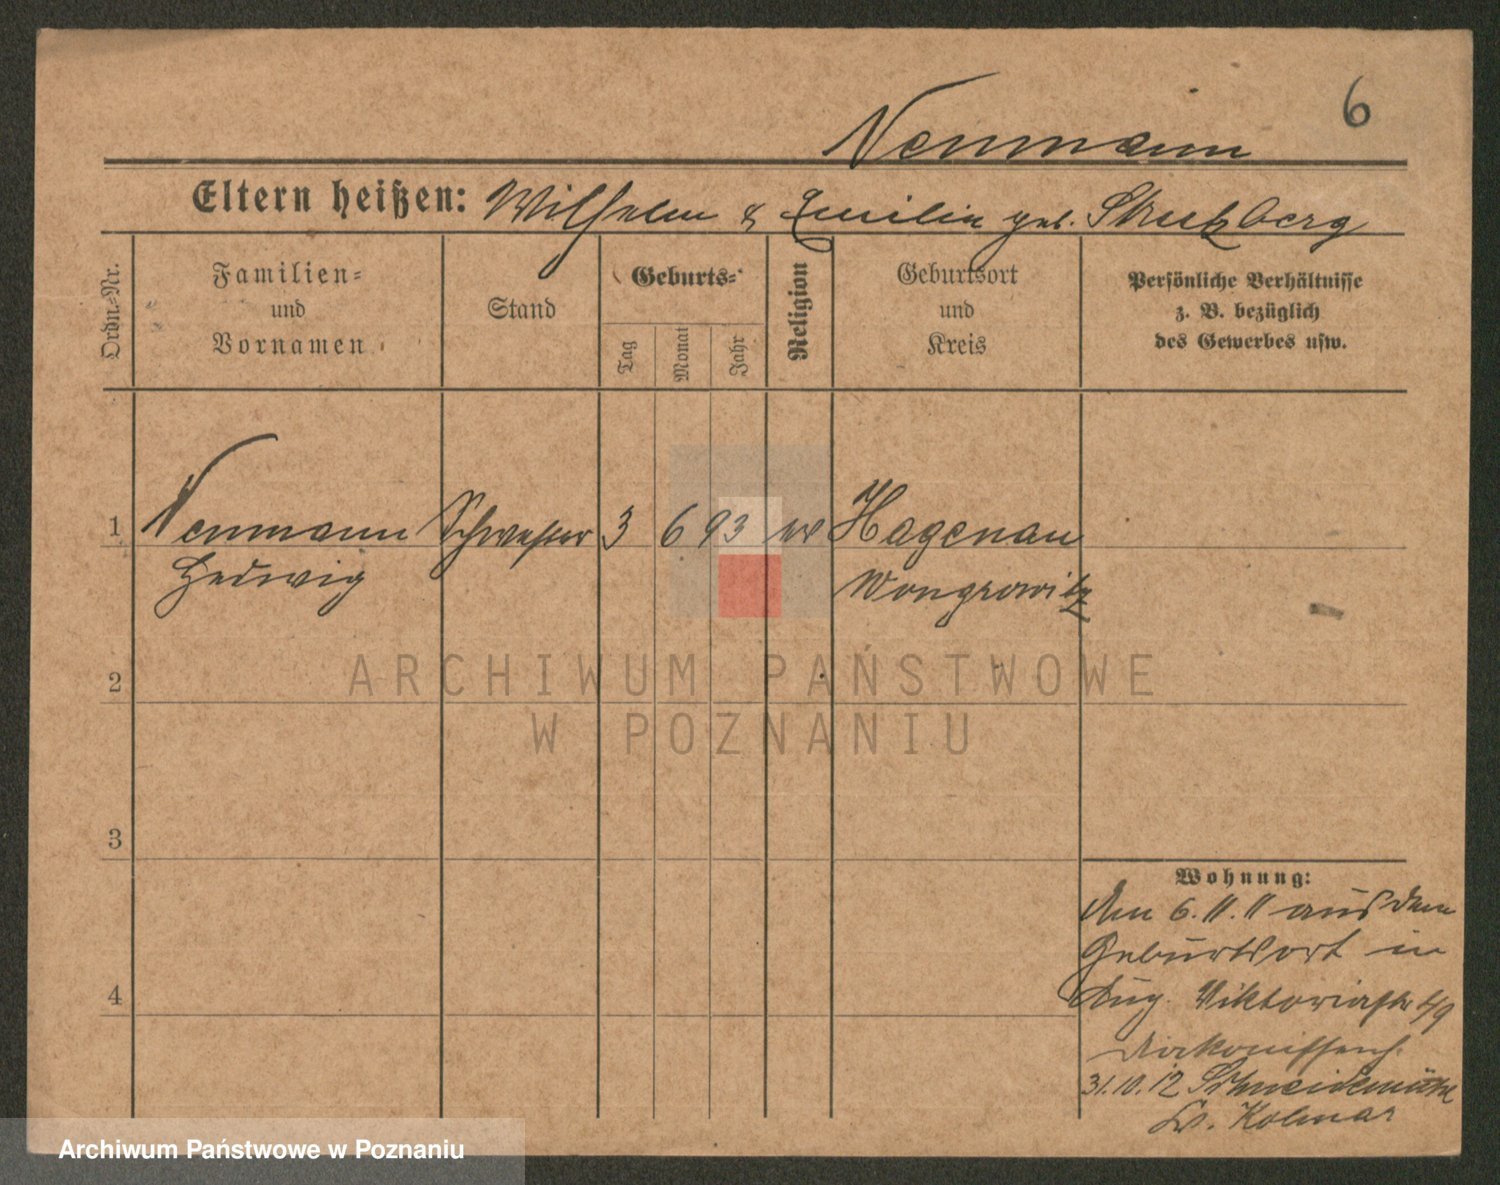 6
Neumann
Eltern heißen: Wilhelm & Emilie geb. Strutzberg
Ordn.-Nr.
Familien-
und
Vornamen
Stand
Geburts-
Tag
Monat
Jahr
Religion
Geburtsort
und
Kreis
Persönliche Verhältnisse
z. B. bezüglich
des Gewerbes usw.
1 Neumann Schwester 3 6 93 ev Hagenau
Hedwig Wongrowitz
2
3
4
Wohnung:
Am 6.11.11 aus dem
Geburtsort in
Aug. Viktoriastr 4/9
Diakonissenh.
31.10.12 Schneidemühl
Kr. Kolmar
ARCHIWUM PAŃSTWOWE
W POZNANIU
Archiwum Państwowe w Poznaniu